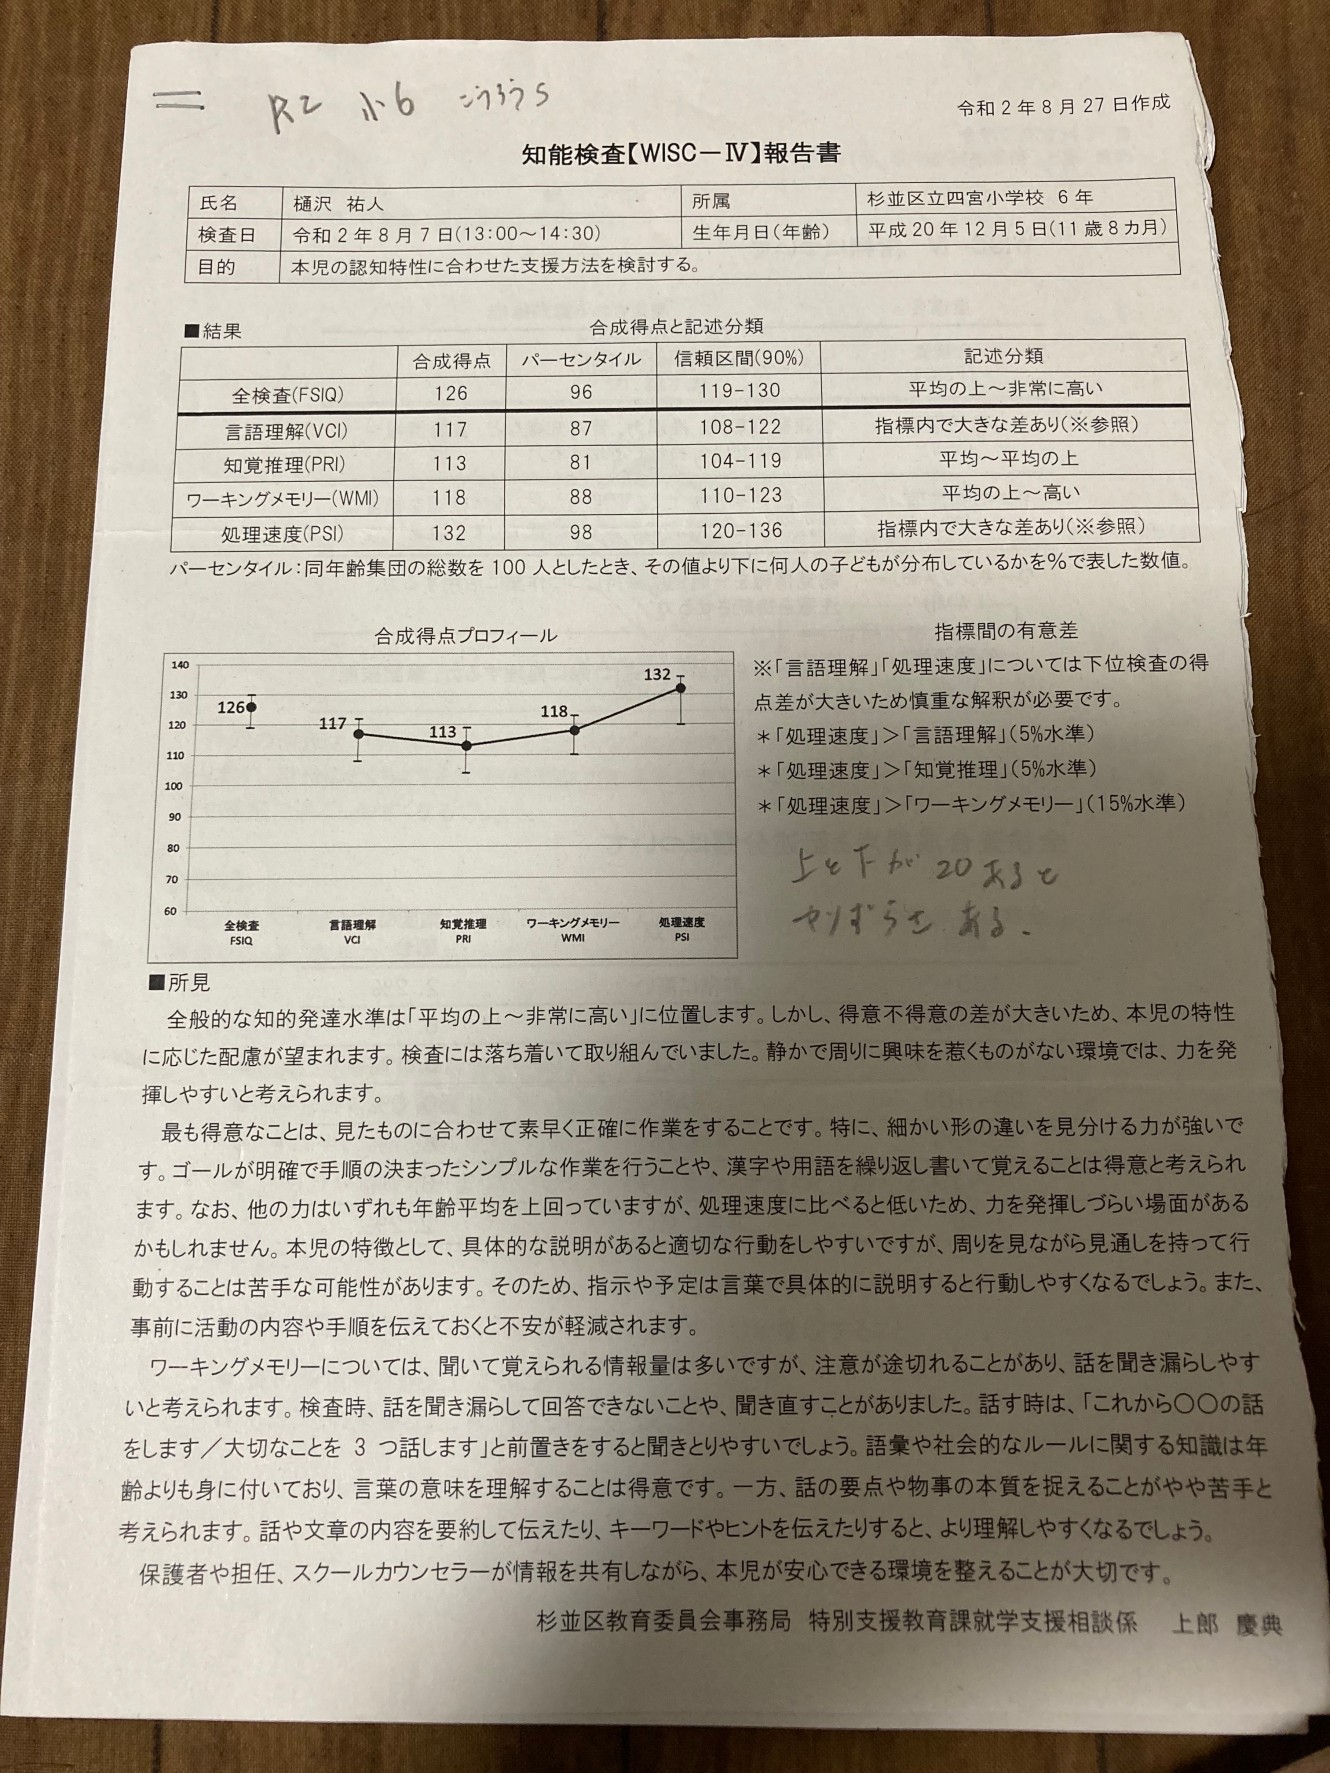 R2 小6
令和2年8月27日作成
知能検査【WISC－Ⅳ】報告書
氏名 樋沢 祐人 所属 杉並区立四宮小学校 6年
検査日 令和2年8月7日(13:00～14:30) 生年月日(年齢) 平成20年12月5日(11歳8カ月)
目的 本児の認知特性に合わせた支援方法を検討する。
■結果
合成得点と記述分類
合成得点 パーセンタイル 信頼区間(90%) 記述分類
全検査(FSIQ) 126 96 119-130 平均の上～非常に高い
言語理解(VCI) 117 87 108-122 指標内で大きな差あり(※参照)
知覚推理(PRI) 113 81 104-119 平均～平均の上
ワーキングメモリー(WMI) 118 88 110-123 平均の上～高い
処理速度(PSI) 132 98 120-136 指標内で大きな差あり(※参照)
パーセンタイル：同年齢集団の総数を100人としたとき、その値より下に何人の子どもが分布しているかを%で表した数値。
合成得点プロフィール
140
130
120
110
100
90
80
70
60
126
117
113
118
132
全検査 言語理解 知覚推理 ワーキングメモリー 処理速度
FSIQ VCI PRI WMI PSI
指標間の有意差
※「言語理解」「処理速度」については下位検査の得
点差が大きいため慎重な解釈が必要です。
＊「処理速度」＞「言語理解」(5%水準)
＊「処理速度」＞「知覚推理」(5%水準)
＊「処理速度」＞「ワーキングメモリー」(15%水準)
上と下が 20あると
ある.
■所見
全般的な知的発達水準は「平均の上～非常に高い」に位置します。しかし、得意不得意の差が大きいため、本児の特性
に応じた配慮が望まれます。検査には落ち着いて取り組んでいました。静かで周りに興味を惹くものがない環境では、力を発
揮しやすいと考えられます。
最も得意なことは、見たものに合わせて素早く正確に作業をすることです。特に、細かい形の違いを見分ける力が強いで
す。ゴールが明確で手順の決まったシンプルな作業を行うことや、漢字や用語を繰り返し書いて覚えることは得意と考えられ
ます。なお、他の力はいずれも年齢平均を上回っていますが、処理速度に比べると低いため、力を発揮しづらい場面がある
かもしれません。本児の特徴として、具体的な説明があると適切な行動をしやすいですが、周りを見ながら見通しを持って行
動することは苦手な可能性があります。そのため、指示や予定は言葉で具体的に説明すると行動しやすくなるでしょう。また、
事前に活動の内容や手順を伝えておくと不安が軽減されます。
ワーキングメモリーについては、聞いて覚えられる情報量は多いですが、注意が途切れることがあり、話を聞き漏らしやす
いと考えられます。検査時、話を聞き漏らして回答できないことや、聞き直すことがありました。話す時は、「これから〇〇の話
をします／大切なことを 3 つ話します」と前置きをすると聞きとりやすいでしょう。語彙や社会的なルールに関する知識は年
齢よりも身に付いており、言葉の意味を理解することは得意です。一方、話の要点や物事の本質を捉えることがやや苦手と
考えられます。話や文章の内容を要約して伝えたり、キーワードやヒントを伝えたりすると、より理解しやすくなるでしょう。
保護者や担任、スクールカウンセラーが情報を共有しながら、本児が安心できる環境を整えることが大切です。
杉並区教育委員会事務局 特別支援教育課就学支援相談係 上郎 慶典